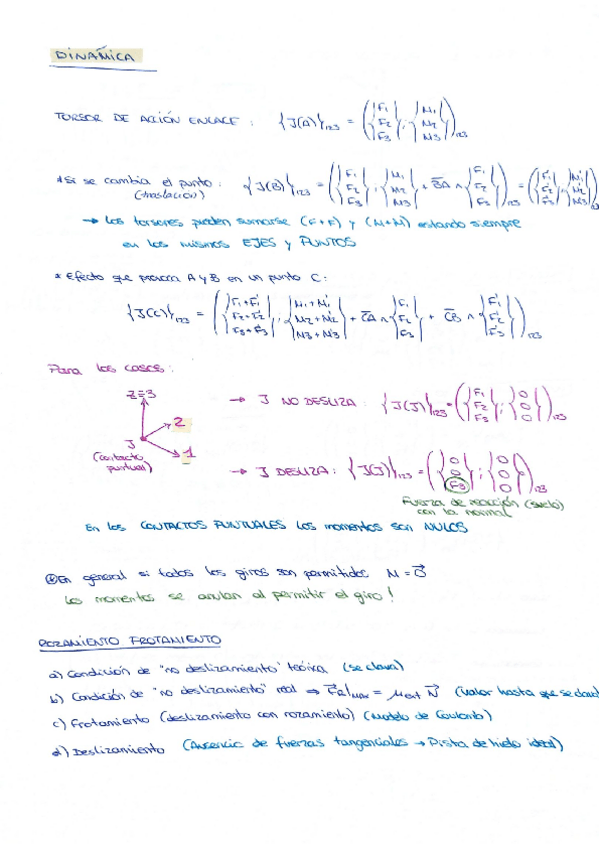 DINÁMICA
TORSOR DE ACCIÓN ENLACE : {J(A)}123 = ({F1 F2 F3} ; {M1 M2 M3})123
*Si se cambia el punto : {J(B)}123 = ({F1 F2 F3} ; {M1 M2 M3} + BA ∧ {F1 F2 F3})123 = ({F1 F2 F3} ; {M1 M2 M3})123
(traslación)
→ Los torsores pueden sumarse (F+F) y (M+M) estando siempre
en los mismos EJES y PUNTOS
* Efecto que provoca A y B en un punto C :
{J(C)}123 = ({F1+F1' F2+F2' F3+F3'} ; {M1+M1' M2+M2' M3+M3'} + CA ∧ {F1 F2 F3} + CB ∧ {F1' F2' F3'})123
Para los casos :
z=3
2
J
1
(contacto puntual)
→ J NO DESLIZA : {J(J)}123 = ({F1 F2 F3} ; {0 0 0})123
→ J DESLIZA : {J(J)}123 = ({0 0 F3} ; {0 0 0})123
Fuerza de reacción (suelo)
con la normal
En los CONTACTOS PUNTUALES los momentos son NULOS
En general si todos los giros son permitidos M = 0
Los momentos se anulan al permitir el giro !
ROZAMIENTO FROTAMIENTO
a) Condición de "no deslizamiento" teórica (se clava)
b) Condición de "no deslizamiento" real ⇒ FR|MAX = μest N (Valor hasta que se clava)
c) Frotamiento (deslizamiento con rozamiento) (Modelo de Coulomb)
d) Deslizamiento (Ausencia de fuerzas tangenciales → Pista de hielo ideal)